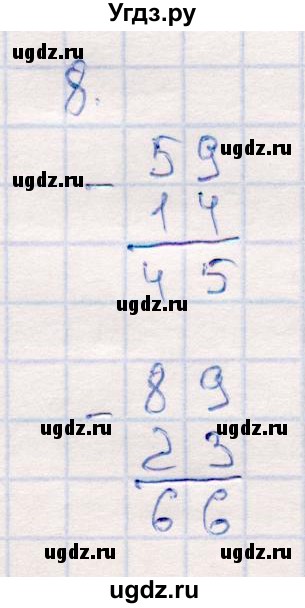 Угдз.ру
ugdz.ru
8.
ugdz.ru
ugdz.ru
— 59
14
45
ugdz.ru ugdz.ru
— 89
ugdz.ru
23
ugdz.ru
66
ugdz.ru ugdz.ru
ugdz.ru